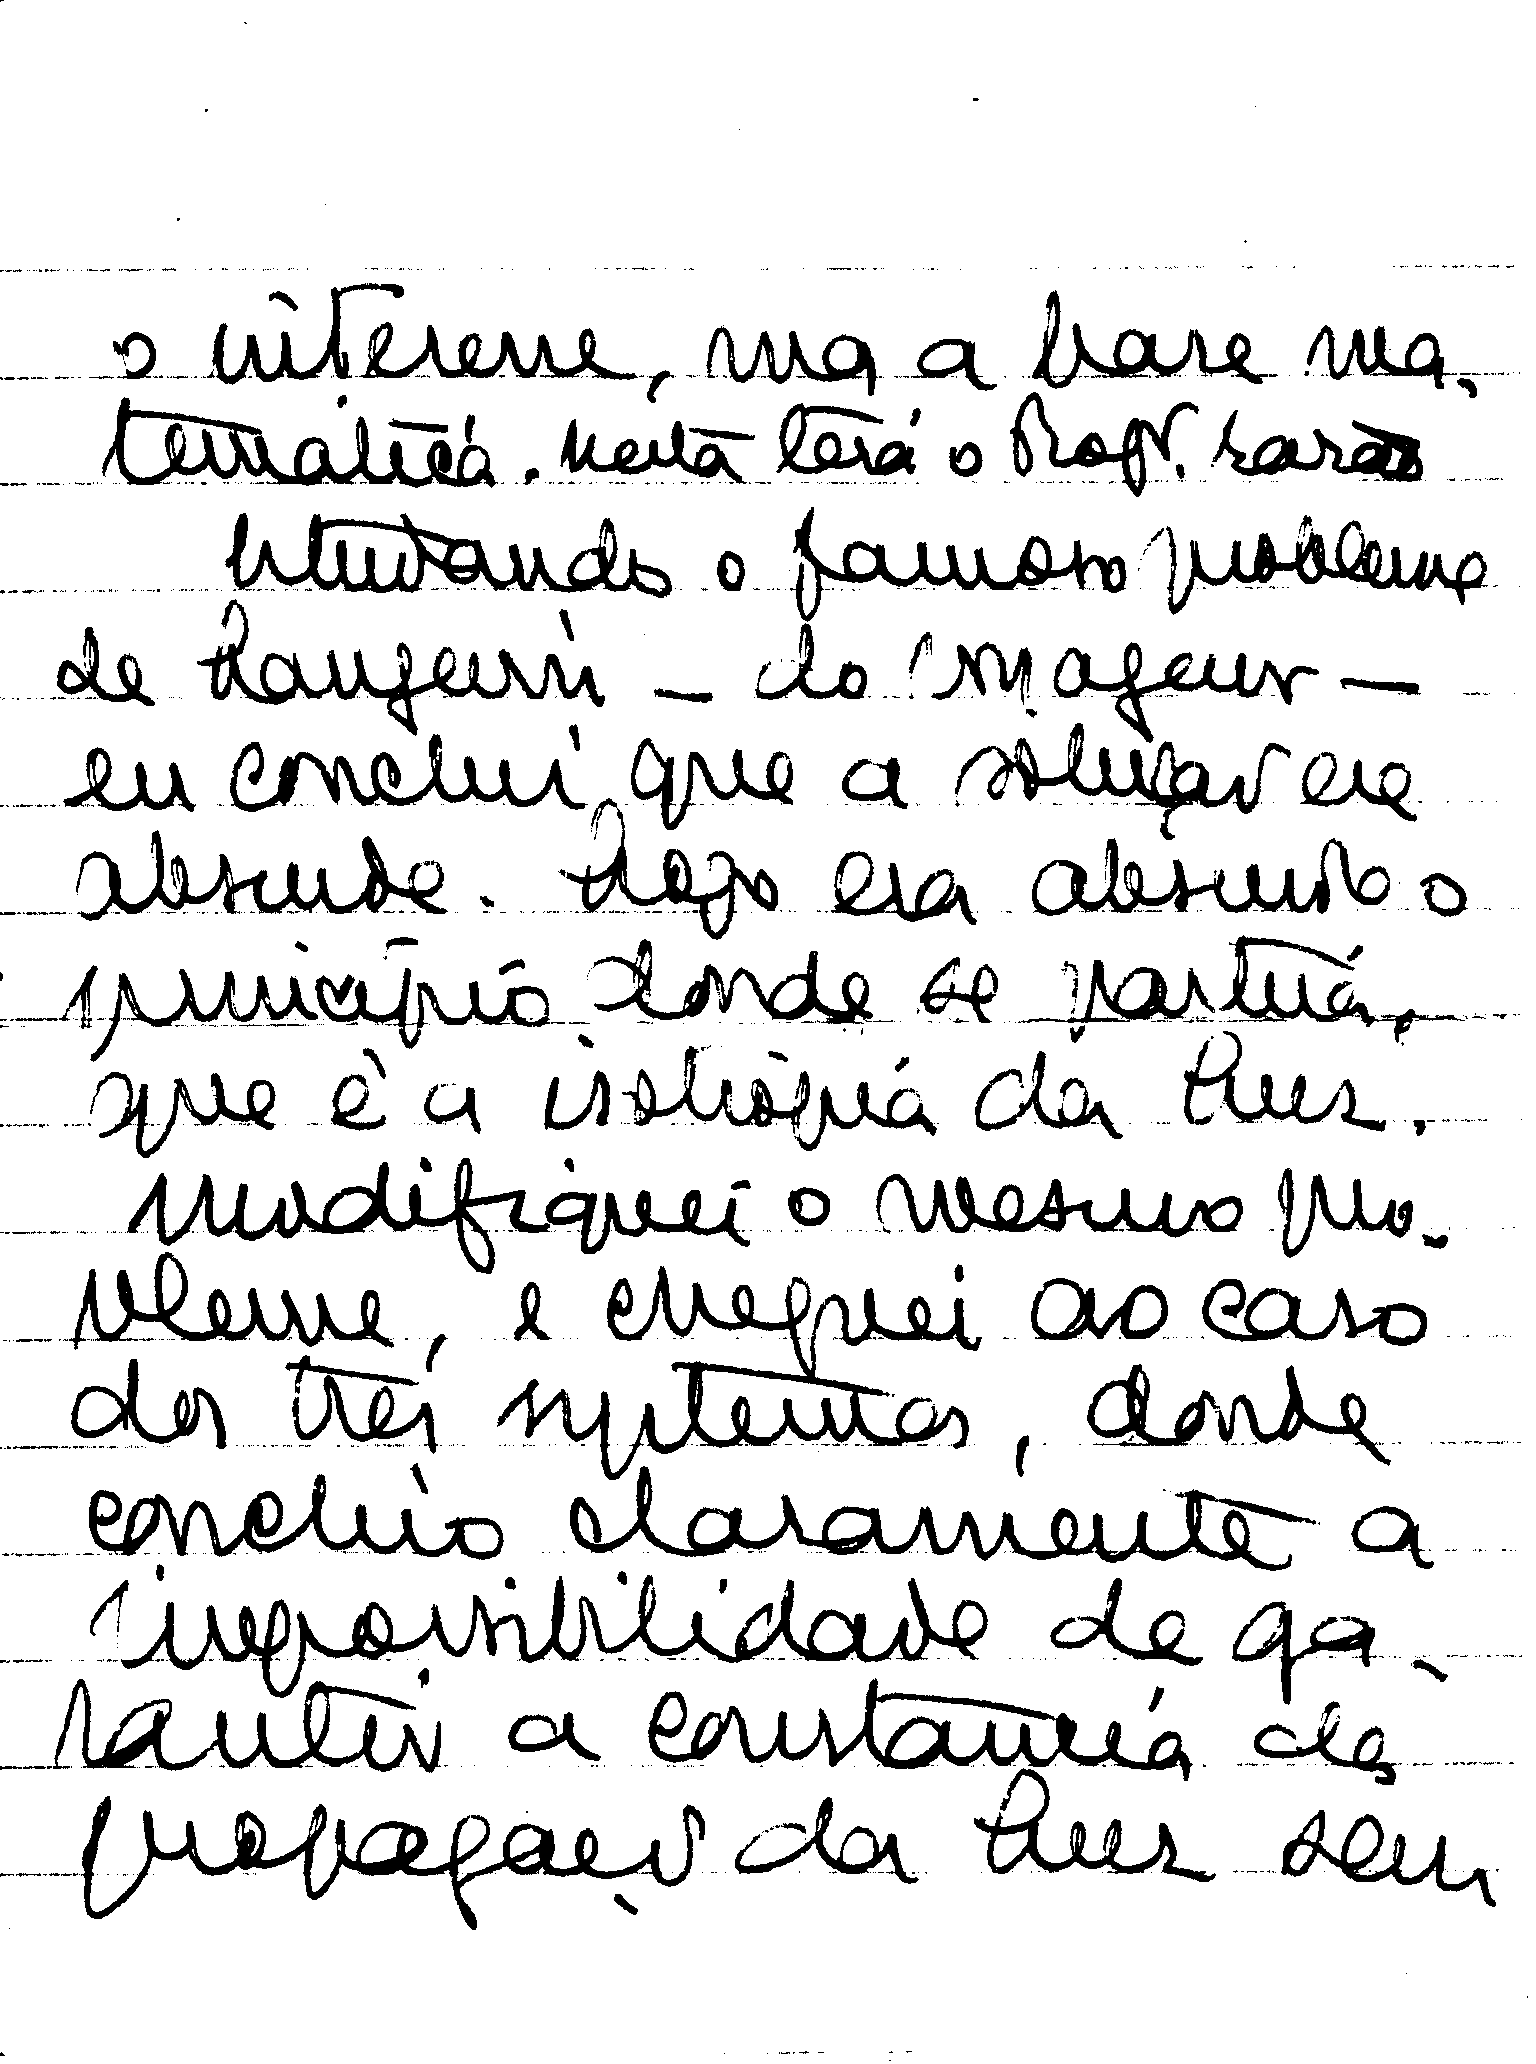 o interesse, mas a base ma-
tematica. Nesta terá o Prof. razão
Estudando o famoso problema
de Langevin — do viajeur —
eu conclui que a solução era
absurda. Logo era absurdo o
principio donde se partia,
que é a isotropia da luz.
Modifiquei o mesmo pro-
blema, e cheguei ao caso
dos três systemas, donde
concluio claramente a
impossibilidade de ga-
rantir a constancia da
propagação da luz sem